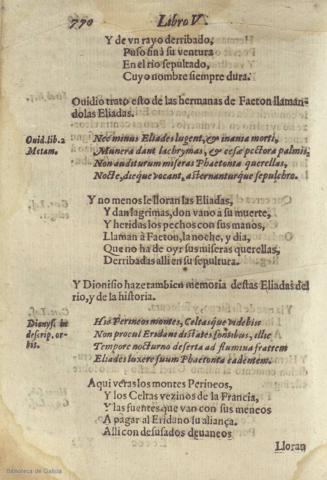 770 Libro V.
Y de vn rayo derribado,
Puso fin à su ventura
En el rio sepultado,
Cuyo nombre siempre dura.
Ouidio trato esto de las hermanas de Faeton llamandolas Eliadas.
Ouid. lib. 2
Metam.
Nec minus Eliades lugent, & inania morti,
Munera dant lachrymas, & cęsę pectora palmis,
Non auditurum miseras Phaetonta querellas,
Nocte, dieque vocant, asternunturque sepulchro.
Y no menos le lloran las Eliadas,
Y dan lagrimas, don vano a su muerte,
Y heridos los pechos con sus manos,
Llaman à Faeton, la noche, y dia,
Que no ha de oyr sus miseras querellas,
Derribadas alli en su sepultura.
Y Dionisio haze tambien memoria destas Eliadas del
rio, y de la historia.
Dionys. in
descrip. or-
bis.
His Perineos montes, Celtasque videbis
Non procul Eridani distātes fontibus, illic
Tempore nocturno deserta ad flumina fratrem
Eliades luxere suum Phaetonta cadentem.
Aqui veras los montes Perineos,
Y los Celtas vezinos de la Francia,
Y las fuentes que van con sus meneos
A pagar al Eridano su aliança.
Alli con desusados deuaneos
Lloran
Biblioteca de Galicia